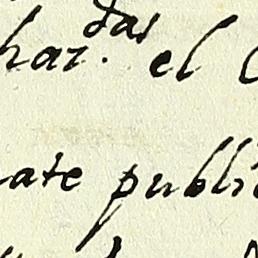 das
har. el
ate publi